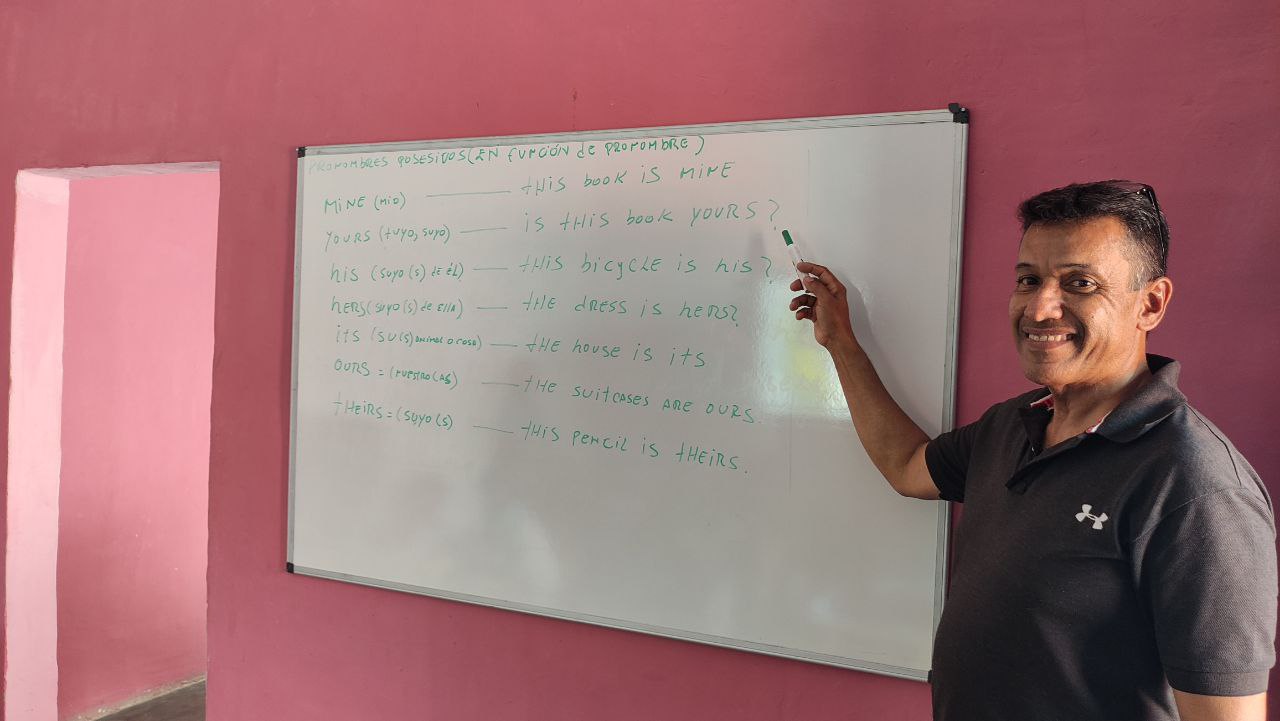 PRONOMBRES POSESIVOS (EN fUNCIÓN dE PRONOMBRE)
MiNE (MIO) ——— tHiS book iS MiNE
YOURS (tUYO, SUYO) ——— iS tHiS book YOURS?
hiS (SUYO(S) dE ÉL) ——— tHiS biCYCLE iS hiS?
hERS (SUYO(S) dE EllA) ——— tHE dRESS iS hERS?
itS (SU(S) ANiMAL O COSA) ——— tHE hOUSE iS itS
OURS = (NUEStRO(AS) ——— tHE SUitCASES ARE OURS.
tHEiRS = (SUYO(S) ——— tHiS PENCiL iS tHEiRS.